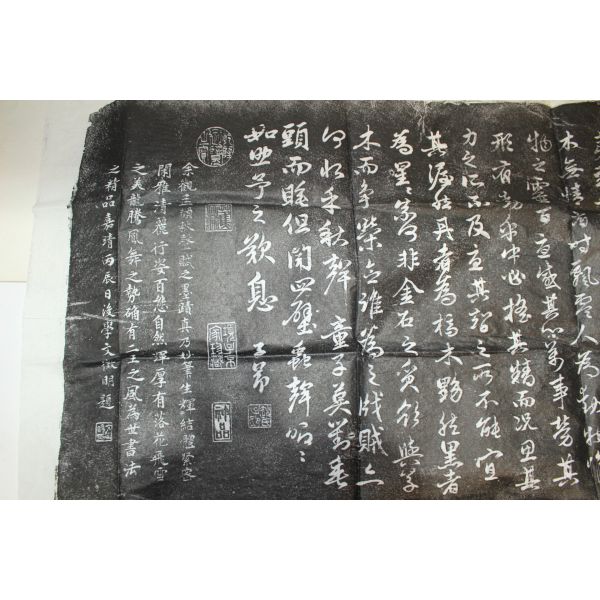 木無情有時飄零人為動物惟
物之靈百憂感其心萬事勞其
形有動乎中必搖其精而況思其
力之所不及憂其智之所不能宜
其渥然丹者為槁木黟然黑者
為星星奈何非金石之質欲與草
木而爭榮念誰為之戕賊亦
何恨乎秋聲 童子莫對垂
頭而睡但聞四壁蟲聲唧唧
如助予之歎息 子昂
余觀孟頫秋聲賦之墨蹟真乃妙筆生輝結體緊密
閑雅清麗行姿百態自然渾厚有落花飛雪
之美龍騰鳳舞之勢确有二王之風為世書法
之精品嘉靖丙辰日後學文徵明題